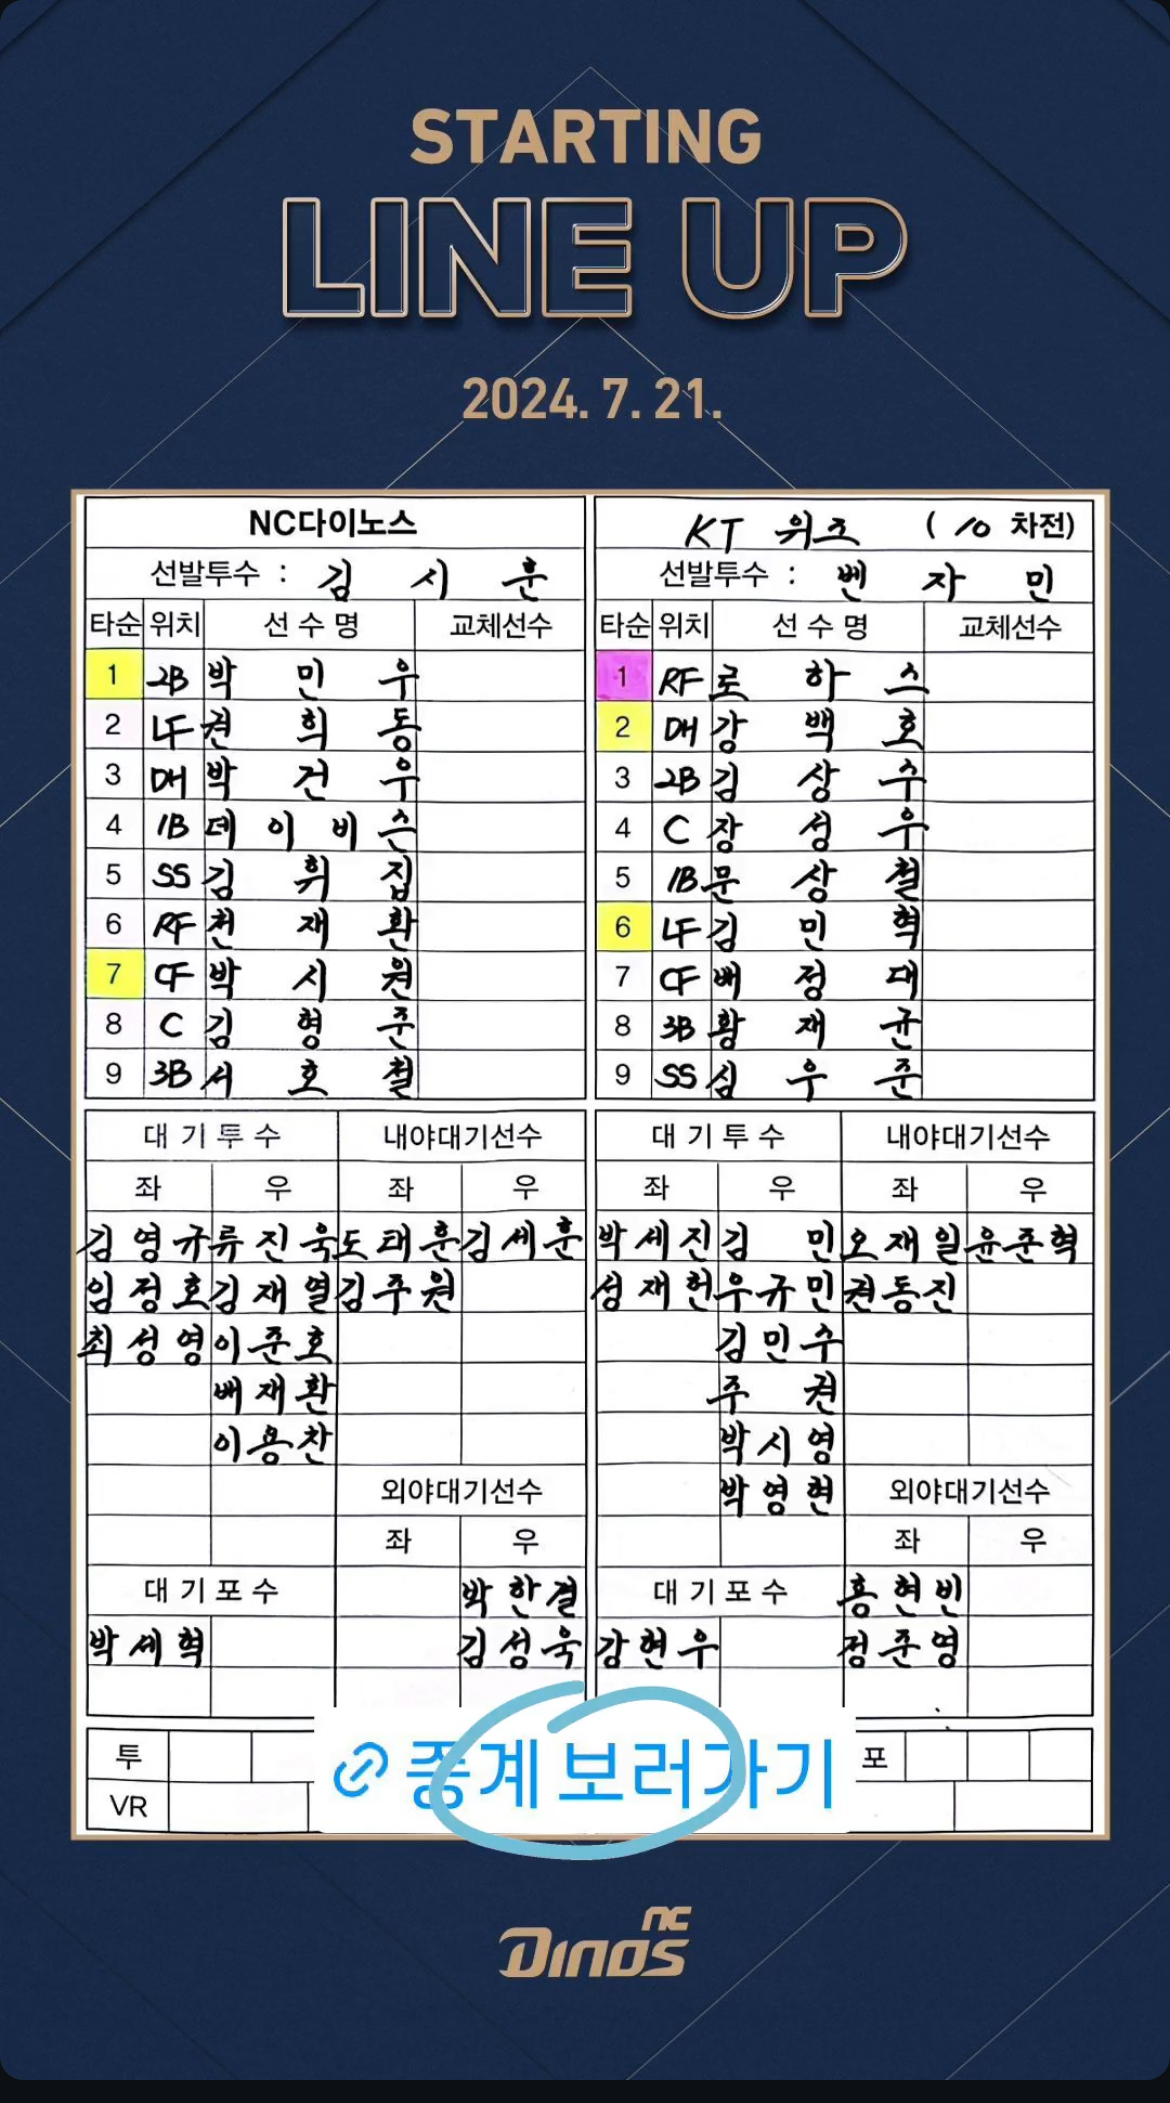 STARTING
LINE UP
2024. 7. 21.
NC다이노스
선발투수 : 김 시 훈
타순 위치 선수명 교체선수
1 2B 박 민 우
2 LF 권 희 동
3 DH 박 건 우
4 1B 데 이 비 슨
5 SS 김 휘 집
6 RF 천 재 환
7 CF 박 시 원
8 C 김 형 준
9 3B 서 호 철
KT 위즈 ( 10 차전)
선발투수 : 벤 자 민
타순 위치 선수명 교체선수
1 RF 로 하 스
2 DH 강 백 호
3 2B 김 상 수
4 C 장 성 우
5 1B 문 상 철
6 LF 김 민 혁
7 CF 배 정 대
8 3B 황 재 균
9 SS 심 우 준
대기투수 내야대기선수
좌 우 좌 우
김영규 류진욱 도태훈 김세훈
임정호 김재열 김주원
최성영 이준호
배재환
이용찬
외야대기선수
좌 우
대기포수 박한결
박세혁 김성욱
대기투수 내야대기선수
좌 우 좌 우
박세진 김 민 오재일 윤준혁
성재헌 우규민 권동진
김민수
주 권
박시영
박영현 외야대기선수
좌 우
대기포수 홍현빈
강현우 정준영
투 포
VR
중계 보러가기
nc
Dinos